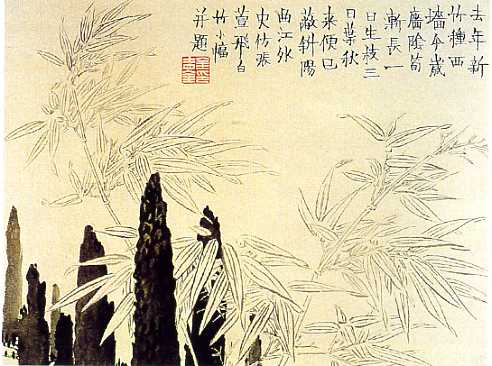 去年新
竹種西
墻今歲
廣陰筍
漸長一
日生枝三
日葉秋
來便已
蔽斜陽
曲江外
史仿張
萱飛白
竹小幅
并題